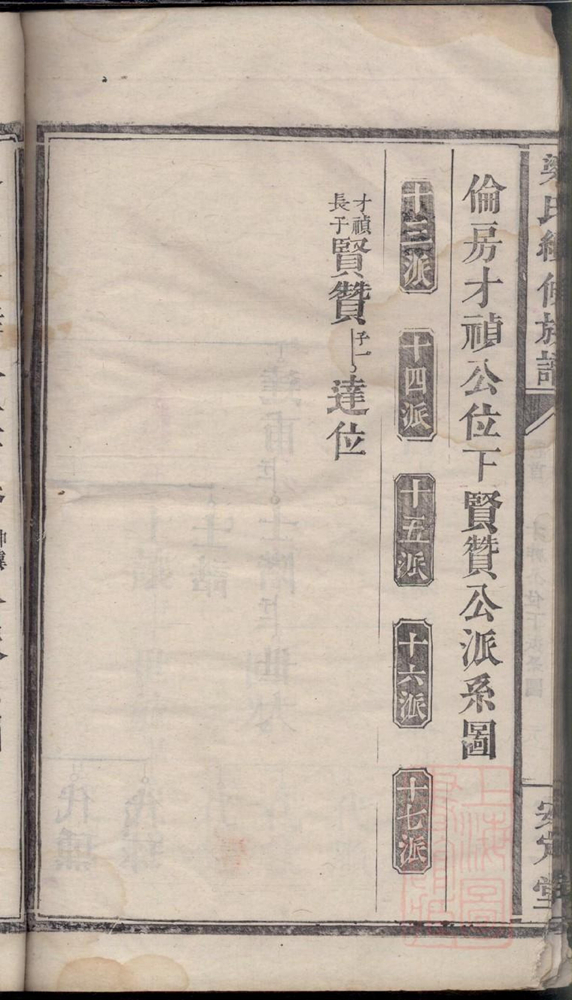 氏續修族譜
安定堂
倫房才禎公位下賢贊公派系圖
十三派 十四派 十五派 十六派 十七派
才禎長子賢贊子一達位